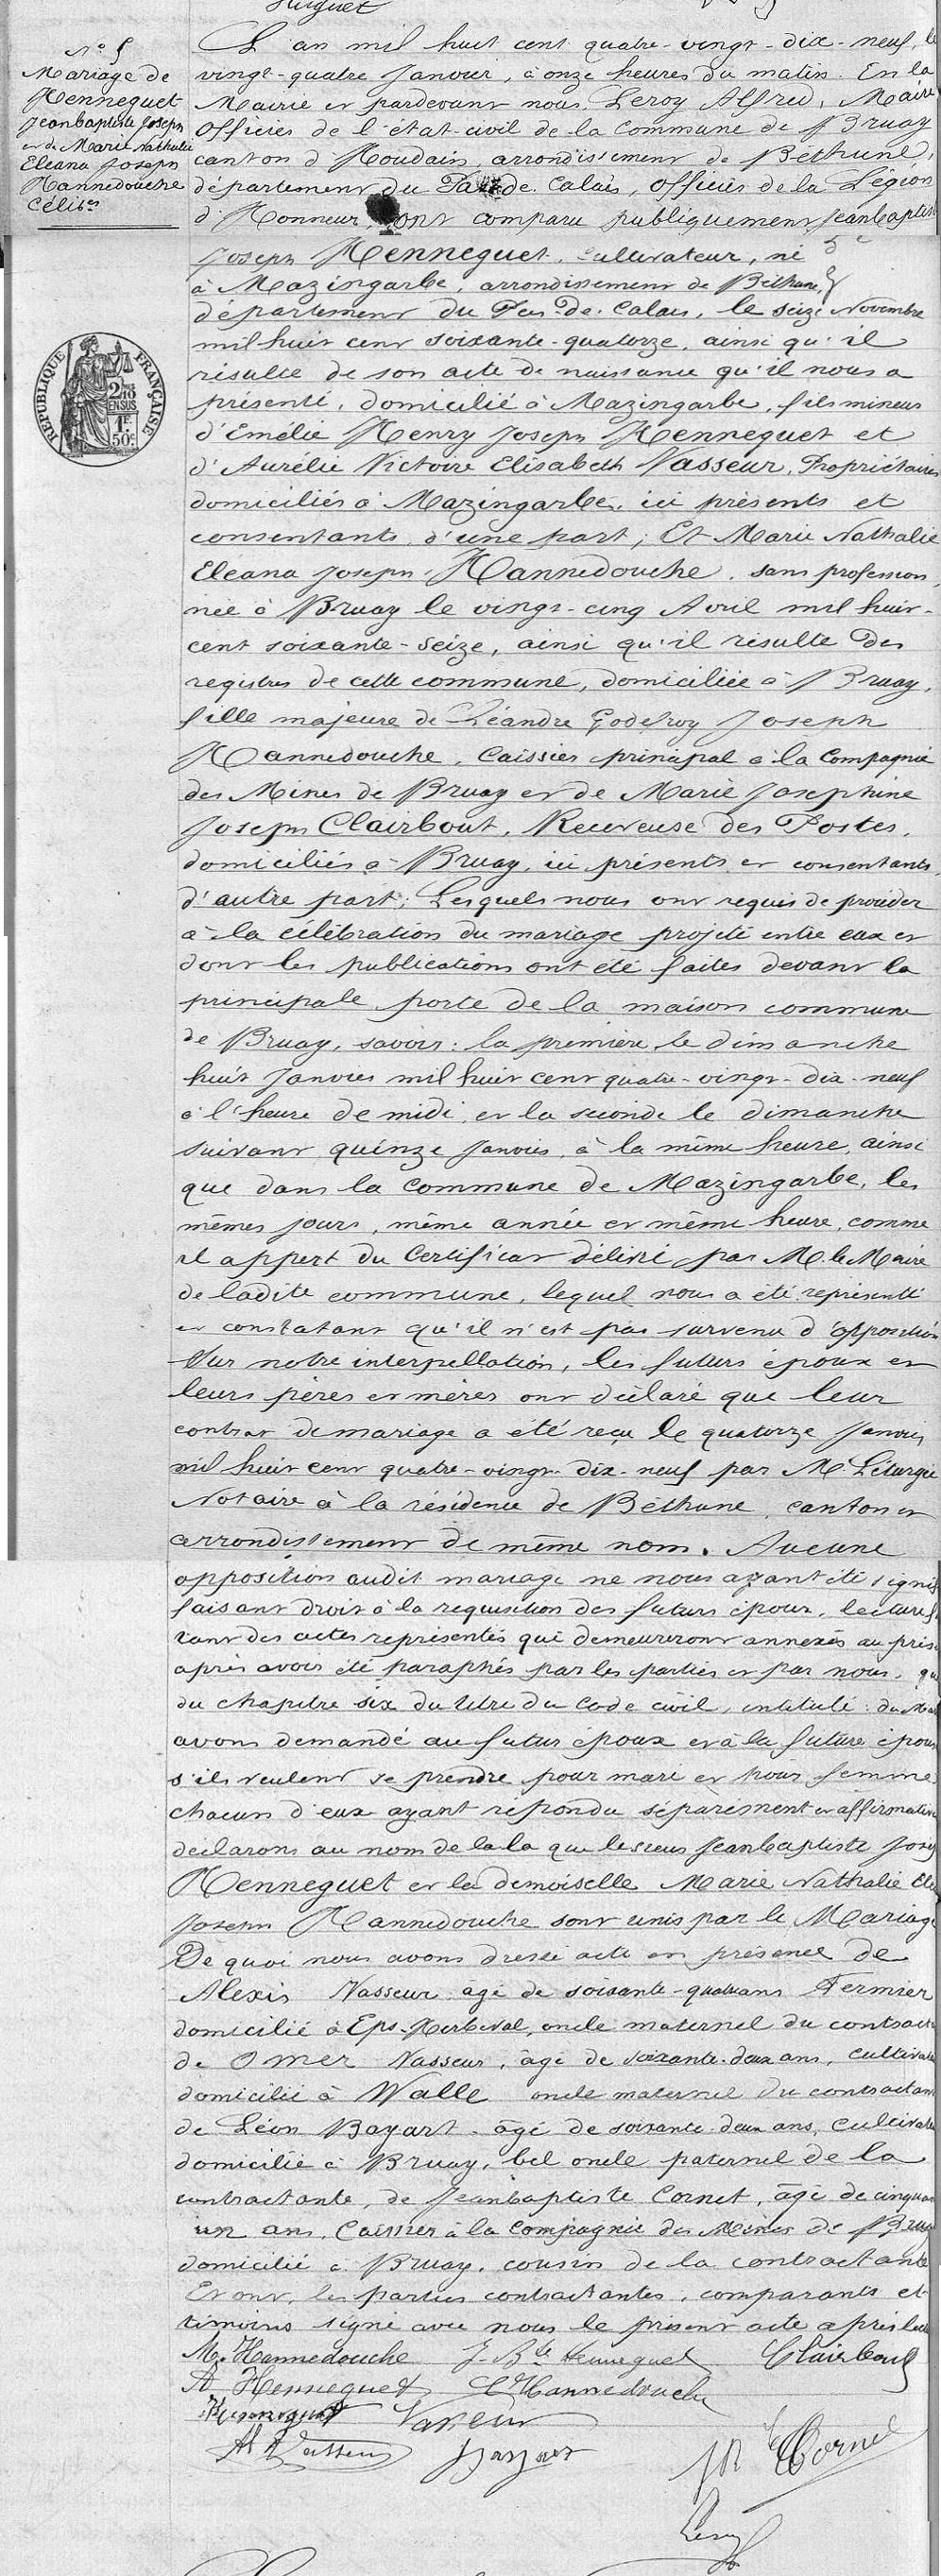 Huguet
N° 5
Mariage de
Henneguet
Jeanbaptiste Joseph
et de Marie Nathalie
Eléana Joseph
Hannedouche
Célib.res
L'an mil huit cent quatre-vingt-dix-neuf, le
vingt-quatre Janvier, à onze heures du matin. En la
Mairie et pardevant nous, Leroy Alfred, Maire
Officier de l'état-civil de la Commune de Bruay
canton d'Houdain, arrondissement de Béthune,
département du Pas-de-Calais, Officier de la Légion
d'Honneur, ont comparu publiquement Jeanbaptiste
Joseph Henneguet, Cultivateur, né
à Mazingarbe, arrondissement de Béthune,
département du Pas-de-Calais, le seize Novembre
mil huit cent soixante-quatorze, ainsi qu'il
résulte de son acte de naissance qu'il nous a
présenté, domicilié à Mazingarbe, fils mineur
d'Emélie Henry Joseph Henneguet et
d'Aurélie Victoire Elisabeth Vasseur, Propriétaires
domiciliés à Mazingarbe, ici présents et
consentants d'une part; Et Marie Nathalie
Eléana Joseph Hannedouche, sans profession,
née à Bruay le vingt-cinq Avril mil huit-
cent soixante-seize, ainsi qu'il résulte des
registres de cette commune, domiciliée à Bruay,
fille majeure de Léandre Godefroy Joseph
Hannedouche, Caissier principal à la Compagnie
des Mines de Bruay et de Marie Joséphine
Joseph Clairbout, Receveuse des Postes,
domiciliés à Bruay, ici présents et consentants,
d'autre part; Lesquels nous ont requis de procéder
à la célébration du mariage projeté entre eux et
dont les publications ont été faites devant la
principale porte de la maison commune
de Bruay, savoir: la première le dimanche
huit Janvier mil huit cent quatre-vingt-dix-neuf
à l'heure de midi et la seconde le dimanche
suivant quinze Janvier, à la même heure, ainsi
que dans la commune de Mazingarbe, les
mêmes jours, même année et même heure, comme
il appert du Certificat délivré par M. le Maire
de ladite commune, lequel nous a été représenté
et constatant qu'il n'est pas survenu d'opposition
Sur notre interpellation, les futurs époux et
leurs pères et mères ont déclaré que leur
contrat de mariage a été reçu le quatorze Janvier
mil huit cent quatre-vingt-dix-neuf par Me Léturgie
Notaire à la résidence de Béthune, canton et
arrondissement de même nom. Aucune
opposition audit mariage ne nous ayant été signif
faisant droit à la requisition des futurs époux, lecture f
tant des actes représentés qui demeureront annexés au prés
après avoir été paraphés par les parties et par nous, que
du chapitre six du titre du Code civil, intitulé: du Mar
avons demandé au futur époux et à la future épous
s'ils veulent se prendre pour mari et pour femme,
chacun d'eux ayant répondu séparément et affirmativ
déclarons au nom de la loi que les sieur Jeanbaptiste Josep
Henneguet et la demoiselle Marie Nathalie Elé
Joseph Hannedouche sont unis par le Mariage
De quoi nous avons dressé acte en présence de
Alexis Vasseur âgé de soixante-quatre ans Fermier
domicilié à Eps-Herbeval, oncle maternel du contract
de Omer Vasseur, âgé de soixante-deux ans, cultivate
domicilié à Walle oncle maternel du contractant
de Léon Bayart âgé de soixante-deux ans, Cultivate
domicilié à Bruay, bel oncle paternel de la
contractante, de Jeanbaptiste Cornet, âgé de cinquan
un ans, Caissier à la Compagnie des Mines de Bruay
domicilié à Bruay, cousin de la contractante
Et ont, les parties contractantes, comparants et
témoins signé avec nous le présent acte après lect
M. Hannedouche J-Bte Henneguet Clairbout
A Henneguet L Hannedouche
Henneguet Vasseur
Al Vasseur Bayart JB Cornet
Leroy
RÉPUBLIQUE FRANÇAISE
2/10
EN SUS
1F
50c